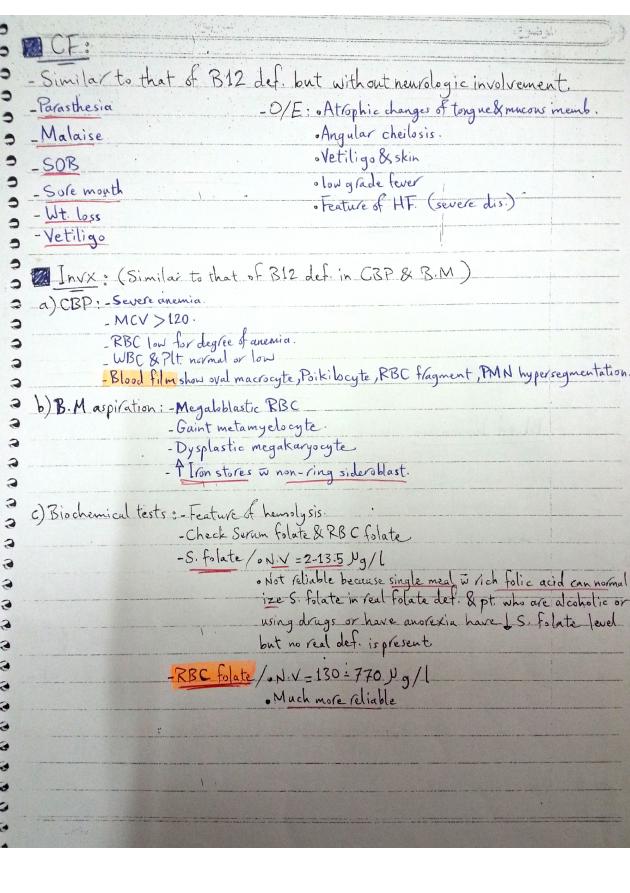 CF:
- Similar to that of B12 def. but without neurologic involvement.
- Parasthesia
- Malaise
- SOB
- Sore mouth
- Wt. loss
- Vetiligo
- O/E: • Atrophic changes of tongue & mucous memb.
• Angular cheilosis.
• Vetiligo & skin
• low grade fever
• Feature of HF. (severe dis.)
Invx: (Similar to that of B12 def. in CBP & B.M)
a) CBP: - Severe anemia.
- MCV > 120.
- RBC low for degree of anemia.
- WBC & Plt normal or low
- Blood film show oval macrocyte, Poikilocyte, RBC fragment, PMN hypersegmentation.
b) B.M aspiration: - Megaloblastic RBC
- Gaint metamyelocyte.
- Dysplastic megakaryocyte
- ↑ Iron stores w̄ non-ring sideroblast.
c) Biochemical tests: - Feature of hemolysis.
- Check Surum folate & RBC folate
- S. folate / • N.V = 2-13.5 μg/l
• Not reliable because single meal w̄ rich folic acid can normal
ize S. folate in real folate def. & pt. who are alcoholic or
using drugs or have anorexia have ↓ S. folate level
but no real def. is present
- RBC folate / • N.V = 130 ÷ 770 μg/l
• Much more reliable